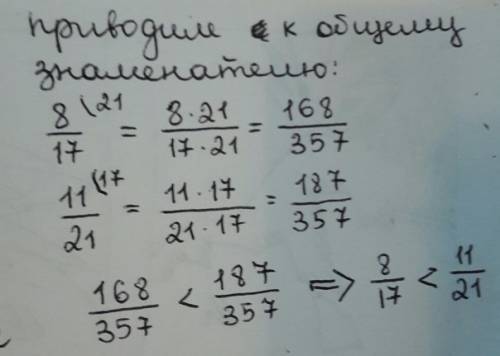 приводим к общему
знаменателю:
8/17 \21 = 8·21/17·21 = 168/357
11/21 \17 = 11·17/21·17 = 187/357
168/357 < 187/357 => 8/17 < 11/21